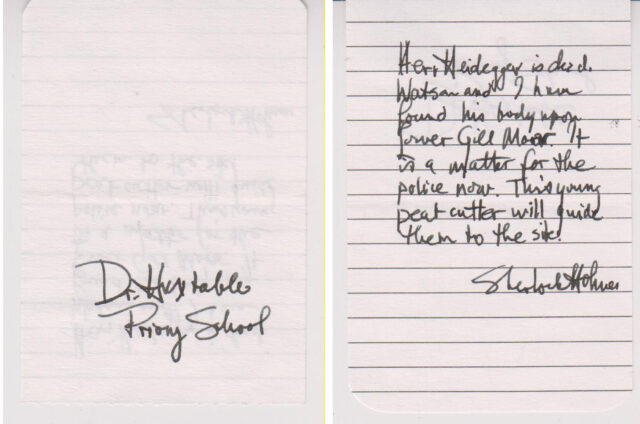 Dr. Huxtable
Priory School
Herr Heidegger is dead.
Watson and I have
found his body upon
Lower Gill Moor. It
is a matter for the
police now. This young
peat cutter will guide
them to the site.
Sherlock Holmes